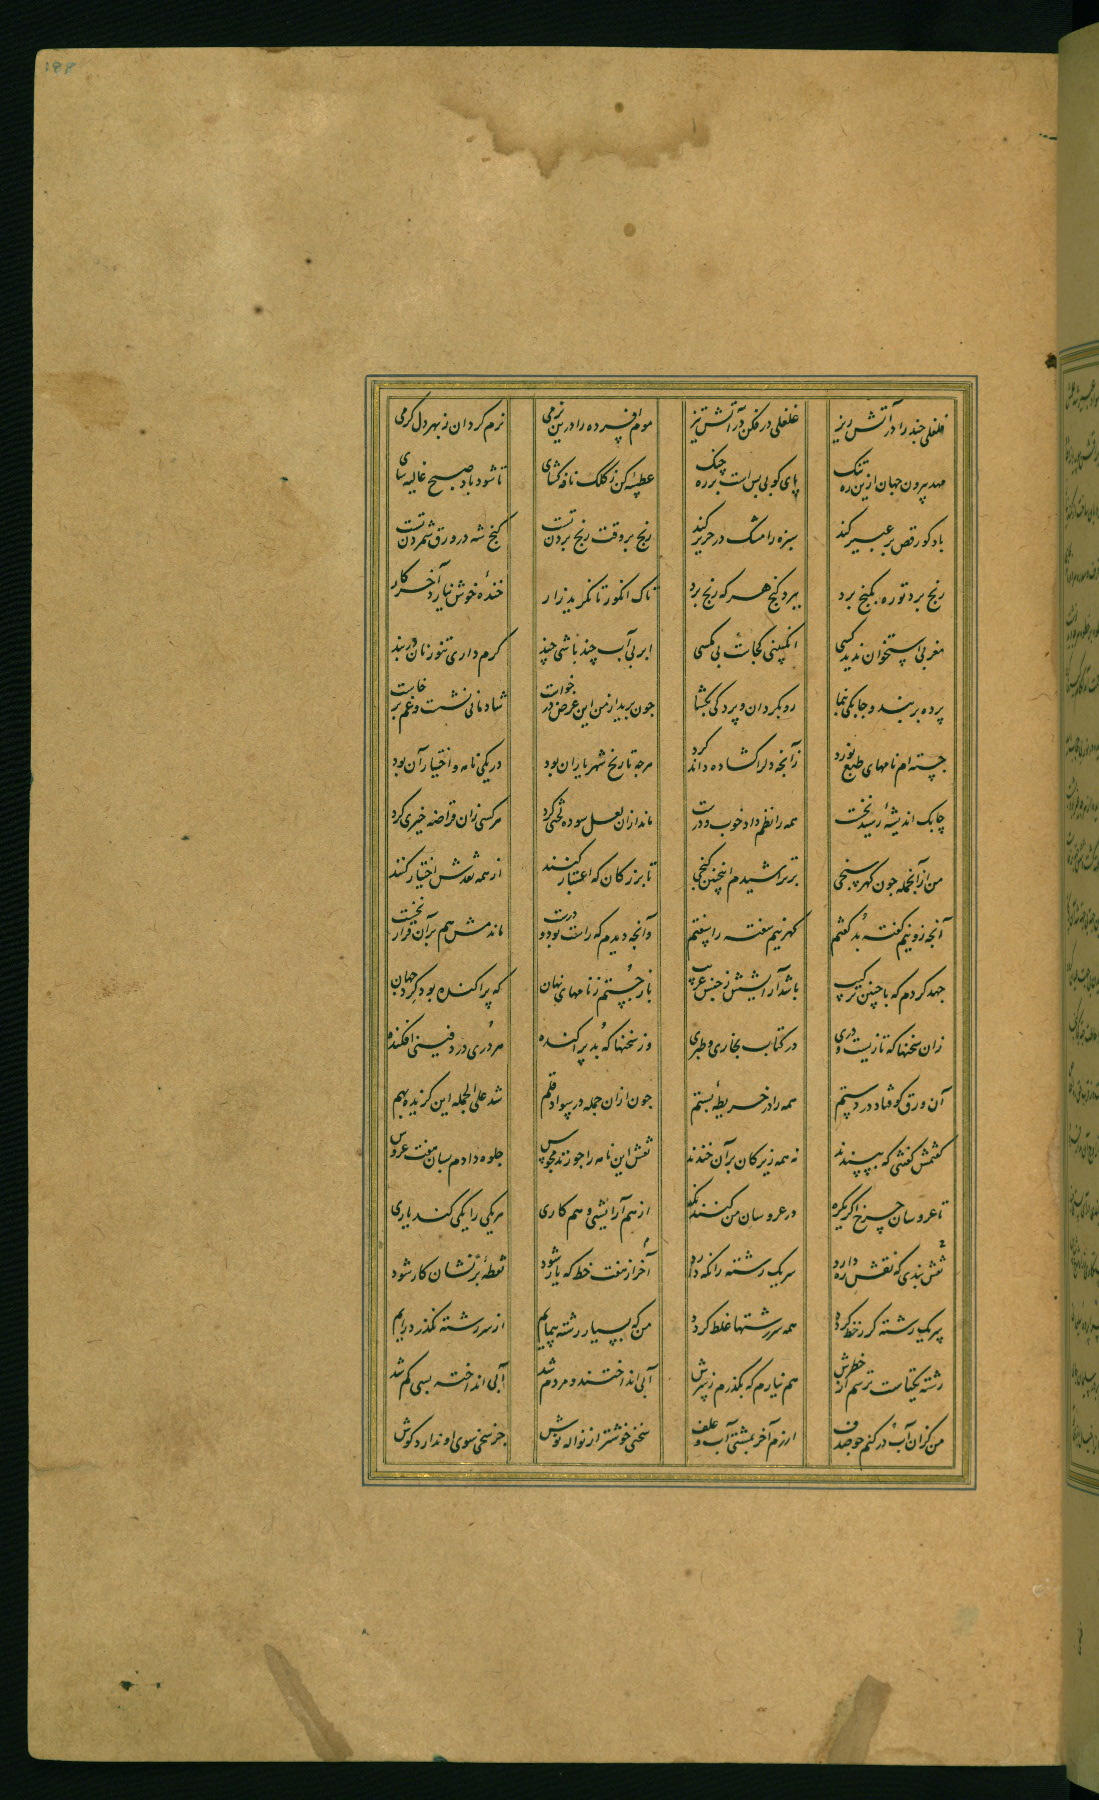 فلفلی چند را در آتش ریز غلغلی در فکن در آتش تیز موم افسرده را درین نرمی نرم کردان ز بهر دل کرمی
مهد بیرون جهان ازین ره تنک پای کوبی بس است بر ره چنک عطسه کن ز کلک نافه کشای تا شود باد صبح غالیه سای
باد کو رقص بر عبیر کند سبزه را مشک در حریر کند رنج بر وقت رنج بردن تست کنج شه در ورق شمردن تست
رنج برد تو ره بکنج برد ببرد کنج هر که رنج برد تاک انکور تا نکرید زار خندهٔ خوش نیارد آخر کار
مغز بی استخوان ندید کسی انکبینی کجاست بی مکسی ابر بی آب چند باشی چند کرم داری تنور نان در بند
پرده بر بند و چابکی بنما رو بکردان و پردکی بکشا چون برید از من این غرض در خواست شادمانی نشست و غم برخاست
جسته ام نامهای طبع نورد زآنچه دلرا کشاده داند کرد هرچه تاریخ شهریاران بود در یکی نامه و اختیار آن بود
چابک اندیشهٔ رسید نخست همه را نظم داد خوب و درست ماند ازان لعل سوده لختی کرد هر کسی زان قراضه خیری کرد
من ازانجمله چون کهر سنجی بر تراشیدم اینچنین کنجی تا بزرکان که اعتبار کنند از همه نقدش اختیار کنند
آنچه زو نیم کفته بد کفتم کهر نیم سفته را سفتم وانچه دیدم که راست بود و درست ماندمش هم بر آن قرار نخست
جهد کردم که با چنین ترکیب باشد آرایشش ز جنس غریب باز جستم ز نامهای نهان که پراکنده بود کرد جهان
زان سخنها که تازیست و دری در کتاب بخاری و طبری وز سخنها که بد پراکنده هر دری در دفینی افکنده
آن ورق کوفتاد در دستم همه را در خریطهٔ بستم چون ازان جمله در سواد قلم شد علی الجمله این کزیده بهم
کفتمش کفتنی که بپسندند نه همه زیرکان بر آن خندند نقش این نامه را چو زند مجوس جلوه دادم بسان هفت عروس
تا عروسان چرخ اکر یکره در عروسان من کنند نکه از هم آرایشی و هم کاری هر یکی را یکی کند یاری
نقش بندی که نقش ره دارد سر یک رشته را نکه دارد آخر از هفت خط که یار شود نقطهٔ بر نشان کار شود
پر یک رشته کر ز خط کردد همه سر رشتها غلط کردد من که بسیار رشته پیمایم از سر رشته نکذرد رایم
رشته یکتاست ترسم از خطرش هم نیارم که بکذرم ز سرش آبی انداختند و مردم شد آبی انداخته بسی کم شد
من کزان آب در کنم چو صدف ارزم آخر بمشتی آب و علف سخنی خوشتر از نواله نوش جز سخی سوی او ندارد کوش